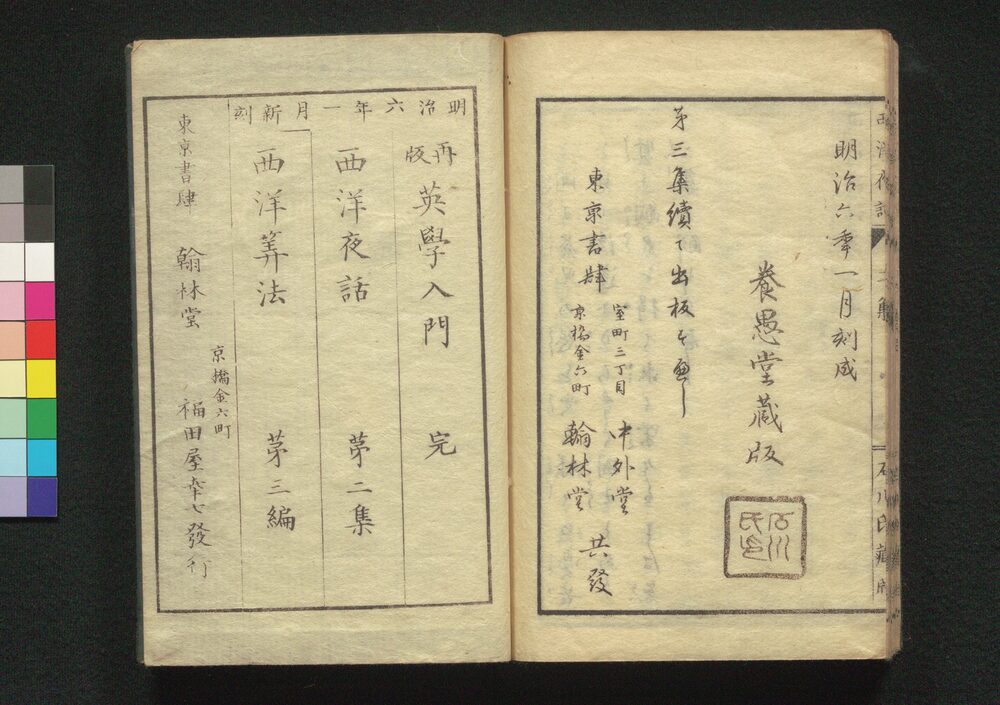 明治六年一月刻成
養愚堂藏版
石川氏印
第三集續て出板すべし
東京書肆
室町三丁目 中外堂
京橋金六町 翰林堂
共發
明治六年一月新刻
再版 英學入門 完
西洋夜話 第二集
西洋筭法 第三編
東京書肆 翰林堂
京橋金六町
福田屋幸七發行